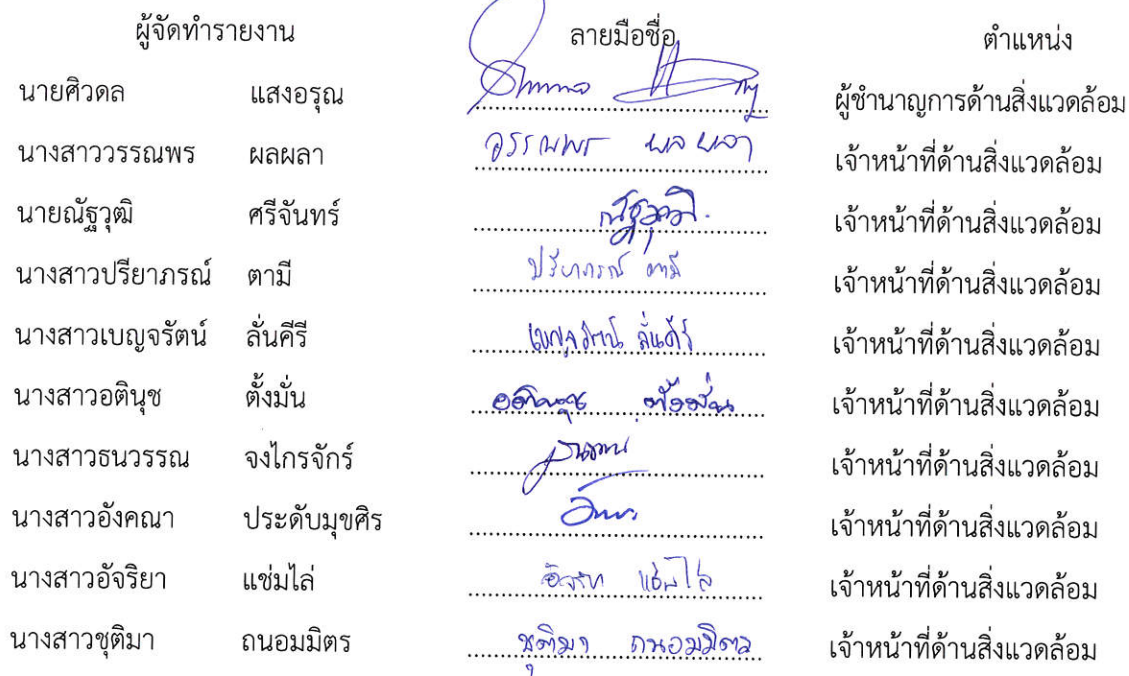 ผู้จัดทำรายงาน ลายมือชื่อ ตำแหน่ง
นายศิวดล แสงอรุณ ผู้ชำนาญการด้านสิ่งแวดล้อม
นางสาววรรณพร ผลผลา วรรณพร ผลผลา เจ้าหน้าที่ด้านสิ่งแวดล้อม
นายณัฐวุฒิ ศรีจันทร์ ณัฐวุฒิ. เจ้าหน้าที่ด้านสิ่งแวดล้อม
นางสาวปรียาภรณ์ ตามี ปรียาภรณ์ ตามี เจ้าหน้าที่ด้านสิ่งแวดล้อม
นางสาวเบญจรัตน์ ลั่นคีรี เบญจรัตน์ ลั่นคีรี เจ้าหน้าที่ด้านสิ่งแวดล้อม
นางสาวอตินุช ตั้งมั่น อตินุช ตั้งมั่น เจ้าหน้าที่ด้านสิ่งแวดล้อม
นางสาวธนวรรณ จงไกรจักร์ เจ้าหน้าที่ด้านสิ่งแวดล้อม
นางสาวอังคณา ประดับมุขศิร เจ้าหน้าที่ด้านสิ่งแวดล้อม
นางสาวอัจริยา แช่มไล่ อัจริยา แช่มไล่ เจ้าหน้าที่ด้านสิ่งแวดล้อม
นางสาวชุติมา ถนอมมิตร ชุติมา ถนอมมิตร เจ้าหน้าที่ด้านสิ่งแวดล้อม